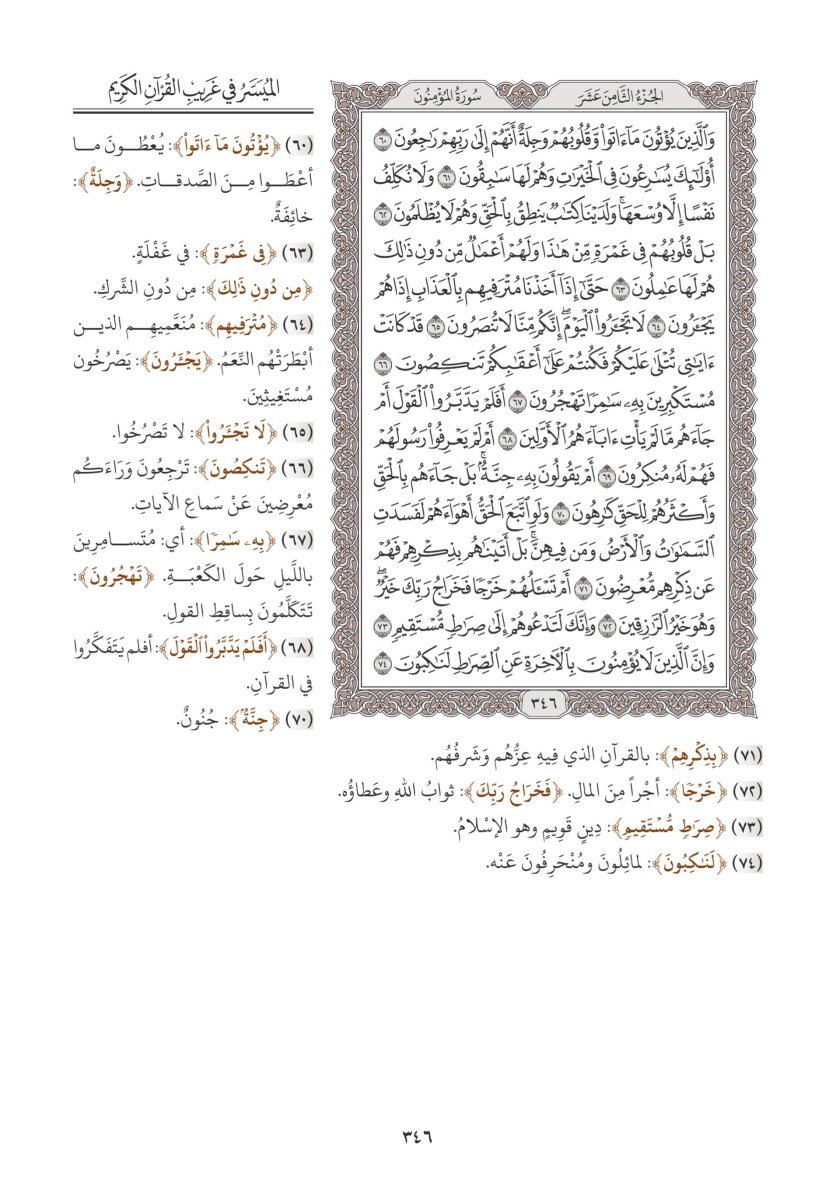 الميُسَّرُ في غَرِيبِ القُرْآنِ الكَرِيم
سُورَةُ المُؤْمِنُونَ
الجُزْءُ الثَّامِنَ عَشَرَ
وَٱلَّذِينَ يُؤْتُونَ مَآ ءَاتَوا۟ وَّقُلُوبُهُمْ وَجِلَةٌ أَنَّهُمْ إِلَىٰ رَبِّهِمْ رَٰجِعُونَ ٦٠
أُو۟لَٰٓئِكَ يُسَٰرِعُونَ فِى ٱلْخَيْرَٰتِ وَهُمْ لَهَا سَٰبِقُونَ ٦١ وَلَا نُكَلِّفُ
نَفْسًا إِلَّا وُسْعَهَا ۖ وَلَدَيْنَا كِتَٰبٌ يَنطِقُ بِٱلْحَقِّ وَهُمْ لَا يُظْلَمُونَ ٦٢
بَلْ قُلُوبُهُمْ فِى غَمْرَةٍ مِّنْ هَٰذَا وَلَهُمْ أَعْمَٰلٌ مِّن دُونِ ذَٰلِكَ
هُمْ لَهَا عَٰمِلُونَ ٦٣ حَتَّىٰٓ إِذَآ أَخَذْنَا مُتْرَفِيهِم بِٱلْعَذَابِ إِذَا هُمْ
يَجْـَٔرُونَ ٦٤ لَا تَجْـَٔرُوا۟ ٱلْيَوْمَ ۖ إِنَّكُم مِّنَّا لَا تُنصَرُونَ ٦٥ قَدْ كَانَتْ
ءَايَٰتِى تُتْلَىٰ عَلَيْكُمْ فَكُنتُمْ عَلَىٰٓ أَعْقَٰبِكُمْ تَنكِصُونَ ٦٦
مُسْتَكْبِرِينَ بِهِۦ سَٰمِرًا تَهْجُرُونَ ٦٧ أَفَلَمْ يَدَّبَّرُوا۟ ٱلْقَوْلَ أَمْ
جَآءَهُم مَّا لَمْ يَأْتِ ءَابَآءَهُمُ ٱلْأَوَّلِينَ ٦٨ أَمْ لَمْ يَعْرِفُوا۟ رَسُولَهُمْ
فَهُمْ لَهُۥ مُنكِرُونَ ٦٩ أَمْ يَقُولُونَ بِهِۦ جِنَّةٌۢ ۚ بَلْ جَآءَهُم بِٱلْحَقِّ
وَأَكْثَرُهُمْ لِلْحَقِّ كَٰرِهُونَ ٧٠ وَلَوِ ٱتَّبَعَ ٱلْحَقُّ أَهْوَآءَهُمْ لَفَسَدَتِ
ٱلسَّمَٰوَٰتُ وَٱلْأَرْضُ وَمَن فِيهِنَّ ۚ بَلْ أَتَيْنَٰهُم بِذِكْرِهِمْ فَهُمْ
عَن ذِكْرِهِم مُّعْرِضُونَ ٧١ أَمْ تَسْـَٔلُهُمْ خَرْجًا فَخَرَاجُ رَبِّكَ خَيْرٌ ۖ
وَهُوَ خَيْرُ ٱلرَّٰزِقِينَ ٧٢ وَإِنَّكَ لَتَدْعُوهُمْ إِلَىٰ صِرَٰطٍ مُّسْتَقِيمٍ ٧٣
وَإِنَّ ٱلَّذِينَ لَا يُؤْمِنُونَ بِٱلْءَاخِرَةِ عَنِ ٱلصِّرَٰطِ لَنَٰكِبُونَ ٧٤
٣٤٦
(٦٠) ﴿يُؤْتُونَ مَآ ءَاتَوا۟﴾: يُعْطُونَ ما
أعْطَوا مِنَ الصَّدقاتِ. ﴿وَجِلَةٌ﴾:
خائِفَةٌ.
(٦٣) ﴿فِى غَمْرَةٍ﴾: في غَفْلَةٍ.
﴿مِن دُونِ ذَٰلِكَ﴾: مِن دُونِ الشِّركِ.
(٦٤) ﴿مُتْرَفِيهِم﴾: مُنَعَّمِيهِم الذين
أبْطَرَتْهُم النِّعَمُ. ﴿يَجْـَٔرُونَ﴾: يَصْرُخُون
مُسْتَغِيثِينَ.
(٦٥) ﴿لَا تَجْـَٔرُوا۟﴾: لا تَصْرُخُوا.
(٦٦) ﴿تَنكِصُونَ﴾: تَرْجِعُونَ وَرَاءَكُم
مُعْرِضِينَ عَنْ سَماعِ الآياتِ.
(٦٧) ﴿بِهِۦ سَٰمِرًا﴾: أي: مُتَسامِرِينَ
باللَّيلِ حَولَ الكَعْبَةِ. ﴿تَهْجُرُونَ﴾:
تَتَكَلَّمُونَ بِساقِطِ القولِ.
(٦٨) ﴿أَفَلَمْ يَدَّبَّرُوا۟ ٱلْقَوْلَ﴾: أفلم يَتَفَكَّرُوا
في القرآنِ.
(٧٠) ﴿جِنَّةٌۢ﴾: جُنُونٌ.
(٧١) ﴿بِذِكْرِهِمْ﴾: بالقرآنِ الذي فِيهِ عِزُّهُم وَشَرفُهُم.
(٧٢) ﴿خَرْجًا﴾: أجْراً مِنَ المالِ. ﴿فَخَرَاجُ رَبِّكَ﴾: ثوابُ اللهِ وعَطاؤُه.
(٧٣) ﴿صِرَٰطٍ مُّسْتَقِيمٍ﴾: دِينٍ قَوِيمٍ وهو الإسْلامُ.
(٧٤) ﴿لَنَٰكِبُونَ﴾: لمائِلُونَ ومُنْحَرِفُونَ عَنْه.
٣٤٦